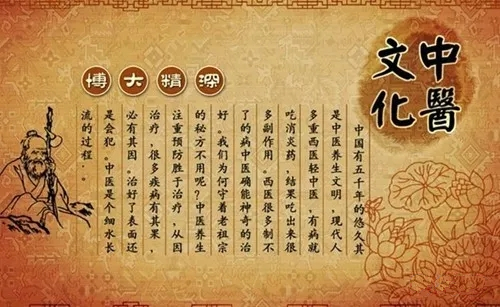 中醫
文化
博大精深
中国有五千年的悠久其
是中医养生文明，现代人
多重西医轻中医，有病就
吃消炎药，结果吃出来很
多副作用。西医很多制不
了的病中医确能神奇的治
好。我们为何守着老祖宗
的秘方不用呢？中医养生
注重预防胜于治疗，从因
治疗，很多疾病有其果，
必有其因。治好了表面还
是会犯。中医是个细水长
流的过程·。